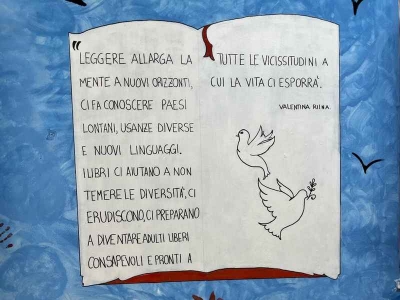 "LEGGERE ALLARGA LA
MENTE A NUOVI ORIZZONTI,
CI FA CONOSCERE PAESI
LONTANI, USANZE DIVERSE
E NUOVI LINGUAGGI.
I LIBRI CI AIUTANO A NON
TEMERE LE DIVERSITA', CI
ERUDISCONO, CI PREPARANO
A DIVENTARE ADULTI LIBERI
CONSAPEVOLI E PRONTI A
TUTTE LE VICISSITUDINI A
CUI LA VITA CI ESPORRA'.
VALENTINA RUINA.